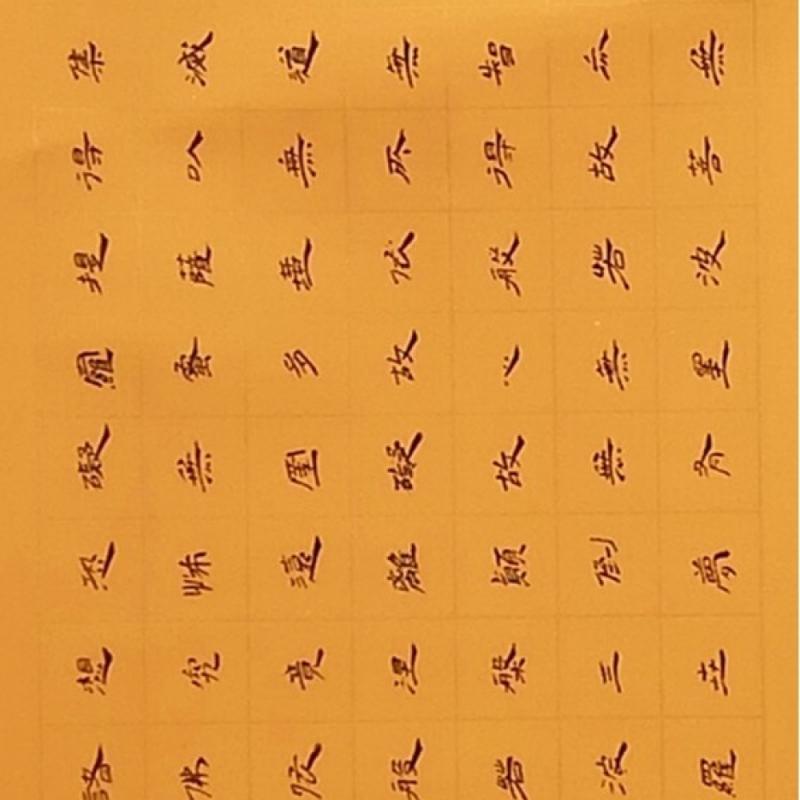 集滅道無智亦無
得以無所得故菩
提薩埵依般若波
羅蜜多故心無罣
礙無罣礙故無有
恐怖遠離顛倒夢
想究竟涅槃三世
諸佛依般若波羅